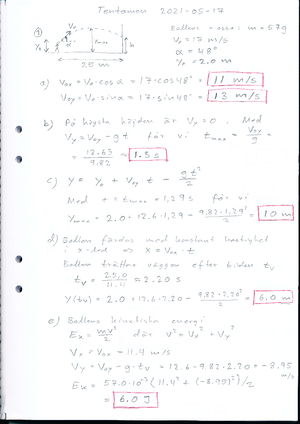 Tentamen 2021-05-17
①
V₀
α
y₀
y_max
h
25 m
Bollens massa: m = 57 g
V₀ = 17 m/s
α = 48°
y₀ = 2.0 m
a) V₀ₓ = V₀·cos α = 17·cos48° = 11 m/s
V₀y = V₀·sin α = 17·sin48° = 13 m/s
b) På högsta höjden är Vy = 0. Med
Vy = V₀y - gt får vi t_max = V₀y/g =
= 12.63/9.82 = 1.3 s
c) y = y₀ + V₀y t - gt²/2
Med t = t_max = 1.29 s får vi
y_max = 2.0 + 12.6·1.29 - 9.82·1.29²/2 = 10 m
d) Bollen färdas med konstant hastighet
i x-led ⇒ x = V₀ₓ·t
Bollen träffar väggen efter tiden t_v
t_v = 25.0/11.4 = 2.20 s
y(t_v) = 2.0 + 12.6·2.20 - 9.82·2.20²/2 = 6.0 m
e) Bollens kinetiska energi
Eₖ = mv²/2 där v² = Vₓ² + Vy²
Vₓ = V₀ₓ = 11.4 m/s
Vy = V₀y - g·t_v = 12.6 - 9.82·2.20 = -8.95 m/s
Eₖ = 57.0·10⁻³(11.4² + (-8.95)²)/2
= 6.0 J